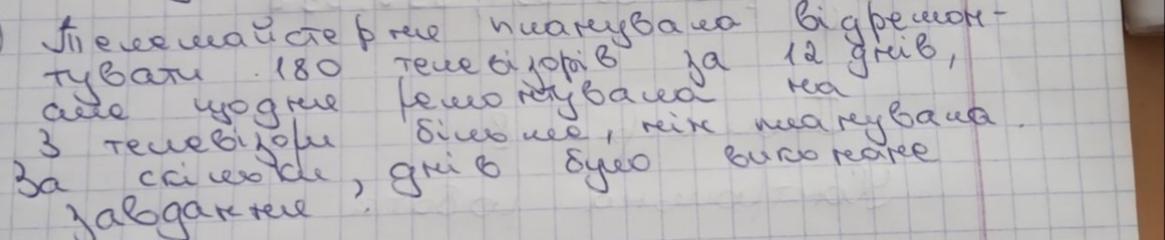 Телемайстерня планувала відремон-
тувати 180 телевізорів за 12 днів,
але щодня ремонтувала на
3 телевізори більше, ніж планувала.
За скільки, днів було виконане
завдання